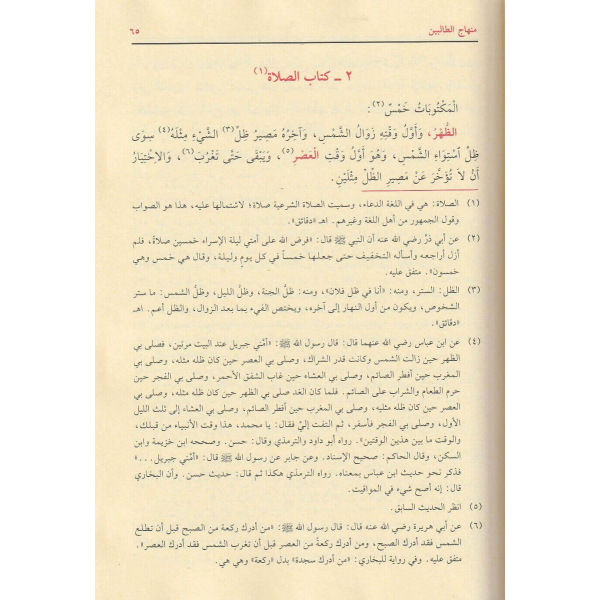 منهاج الطالبين ٦٥
٢ ـ كتاب الصلاة(١)
الْمَكْتُوبَاتُ خَمْسٌ(٢):
الظُّهْرُ، وَأَوَّلُ وَقْتِهِ زَوَالُ الشَّمْسِ، وَآخِرُهُ مَصِيرُ ظِلِّ(٣) الشَّيْءِ مِثْلَهُ(٤) سِوَى
ظِلِّ اسْتِوَاءِ الشَّمْسِ، وَهُوَ أَوَّلُ وَقْتِ الْعَصْرِ(٥)، وَيَبْقَى حَتَّى تَغْرُبَ(٦)، وَالاِخْتِيَارُ
أَنْ لاَ تُؤَخَّرَ عَنْ مَصِيرِ الظِّلِّ مِثْلَيْنِ.
(١) الصلاة: هي في اللغة الدعاء، وسميت الصلاة الشرعية صلاة؛ لاشتمالها عليه، هذا هو الصواب
وقول الجمهور من أهل اللغة وغيرهم. اهـ «دقائق».
(٢) عن أبي ذرّ رضي الله عنه أن النبي ﷺ قال: «فرض الله على أمتي ليلة الإسراء خمسين صلاة، فلم
أزل أراجعه وأسأله التخفيف حتى جعلها خمساً في كل يوم وليلة، وقال هي خمس وهي
خمسون». متفق عليه.
(٣) الظل: الستر، ومنه: «أنا في ظل فلان»، ومنه: ظلُّ الجنة، وظلُّ الليل، وظلُّ الشمس: ما ستر
الشخوص، ويكون من أول النهار إلى آخره، ويختص الفيء بما بعد الزوال، والظل أعم. اهـ
«دقائق».
(٤) عن ابن عباس رضي الله عنهما قال: قال رسول الله ﷺ: «أمَّني جبريل عند البيت مرتين، فصلى بي
الظهر حين زالت الشمس وكانت قدر الشراك، وصلى بي العصر حين كان ظله مثله، وصلى بي
المغرب حين أفطر الصائم، وصلى بي العشاء حين غاب الشفق الأحمر، وصلى بي الفجر حين
حرم الطعام والشراب على الصائم. فلما كان الغد صلى بي الظهر حين كان ظله مثله، وصلى بي
العصر حين كان ظله مثليه، وصلى بي المغرب حين أفطر الصائم، وصلى بي العشاء إلى ثلث الليل
الأول، وصلى بي الفجر فأسفر، ثم التفت إليَّ فقال: يا محمد، هذا وقت الأنبياء من قبلك،
والوقت ما بين هذين الوقتين». رواه أبو داود والترمذي وقال: حسن. وصححه ابن خزيمة وابن
السكن، وقال الحاكم: صحيح الإسناد. وعن جابر عن رسول الله ﷺ قال: «أمَّني جبريل...»
فذكر نحو حديث ابن عباس بمعناه. رواه الترمذي هكذا ثم قال: حديث حسن. وأن البخاري
قال: إنه أصح شيء في المواقيت.
(٥) انظر الحديث السابق.
(٦) عن أبي هريرة رضي الله عنه قال: قال رسول الله ﷺ: «من أدرك ركعة من الصبح قبل أن تطلع
الشمس فقد أدرك الصبح، ومن أدرك ركعةً من العصر قبل أن تغرب الشمس فقد أدرك العصر».
متفق عليه. وفي رواية للبخاري: «من أدرك سجدة» بدل «ركعة» وهي هي.